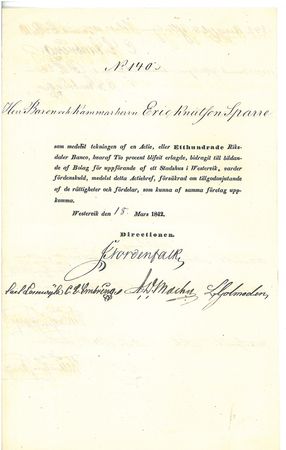 No 140.
Herr Baron och Kammarherrn Eric Knutson Sparre
som medelst tekningen af en Actie, eller Etthundrade Riks-
daler Banco, hvaraf Tio procent blifvit erlagde, bidragit till bildan-
de af Bolag för uppförande af ett Stadshus i Westervik, varder
fördenskuld, medelst detta Actiebref, försäkrad om tillgodonjutande
af de rättigheter och fördelar, som kunna af samma företag upp-
komma.
Westervik den 18 Mars 1842.
Directionen.
J Nordenfalk
Carl